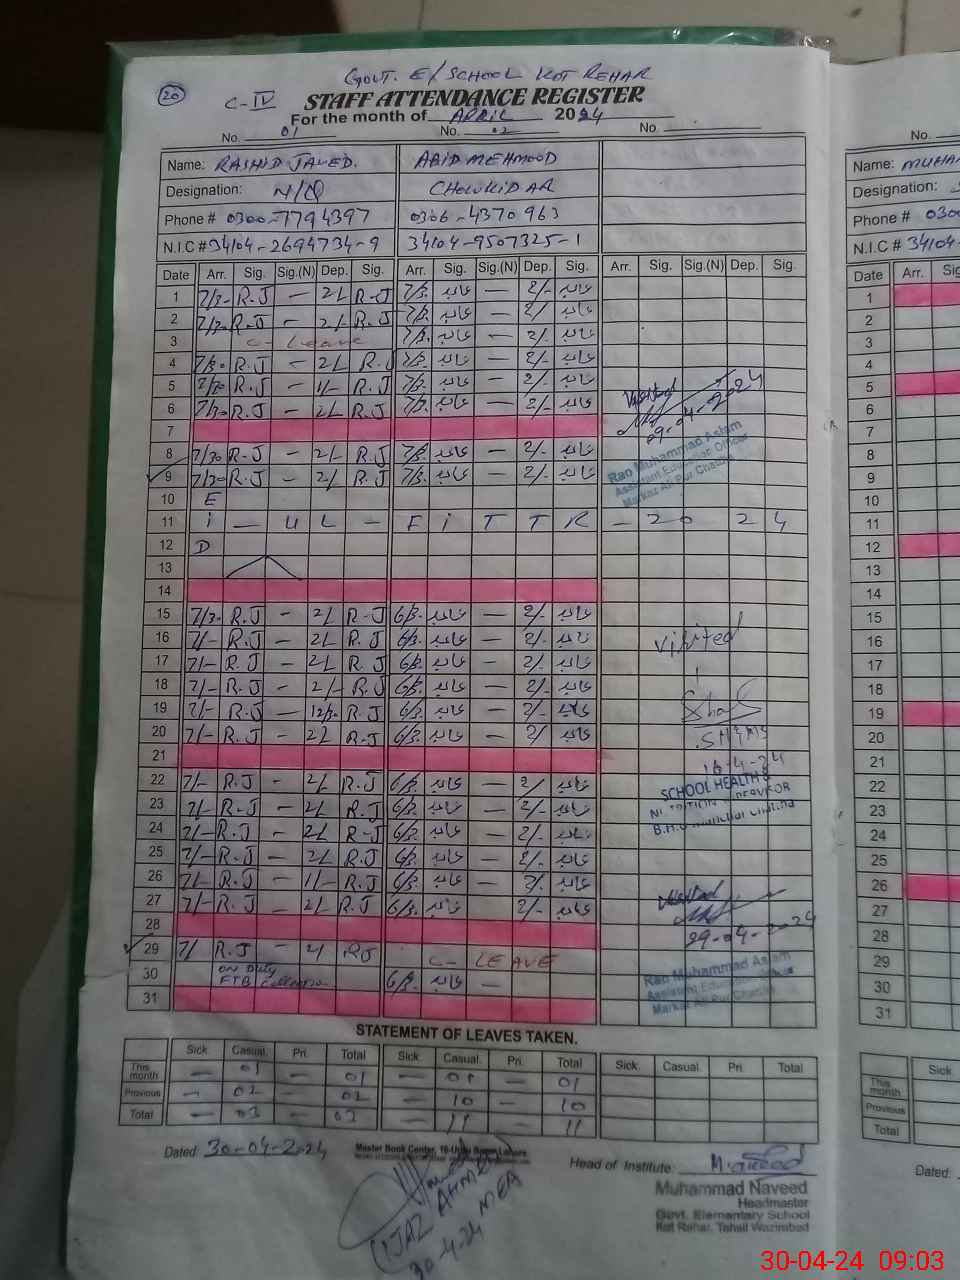 GOVT. E/SCHOOL KOT REHAR
20
C-IV
STAFF ATTENDANCE REGISTER
For the month of APRIL 2024
No. 01 No. 02 No.
Name: RASHID JAVED. ABID MEHMOOD
Designation: N/Q CHOWKIDAR
Phone # 0300-7794397 0306-4370963
N.I.C # 34104-2694734-9 34104-9507325-1
Date Arr. Sig. Sig.(N) Dep. Sig. Arr. Sig. Sig.(N) Dep. Sig. Arr. Sig. Sig.(N) Dep. Sig.
1 7/3- R.J — 2/- R.J 7/3. عابد — 2/- عابد
2 7/30 R.J — 2/- R.J 7/3. عابد — 2/ عابد
3 C- Leave 7/3. عابد — 2/- عابد
4 7/30 R.J — 2/- R.J 7/3. عابد — 2/- عابد
5 7/30 R.J — 1/- R.J 7/3. عابد — 2/- عابد
6 7/30 R.J — 2/- R.J 7/3. عابد — 2/- عابد
7
8 7/30 R.J — 2/- R.J 7/3. عابد — 2/- عابد
9 7/30 R.J — 2/- R.J 7/3. عابد — 2/- عابد
Visited
09-04-2024
Rao Muhammad Aslam
Assistant Education Officer
Markaz Ali Pur Chatha
10 E
11 i — U L — F i T T R — 20 2 4
12 D
13
14
15 7/3- R.J — 2/- R.J 6/3. عابد — 2/- عابد
16 7/- R.J — 2/- R.J 6/3. عابد — 2/- عابد
17 7/- R.J — 2/- R.J 6/3. عابد — 2/- عابد
18 7/- R.J — 2/- R.J 6/3. عابد — 2/- عابد
19 7/- R.J — 12/30 R.J 6/3. عابد — 2/- عابد
20 7/- R.J — 2/- R.J 6/3. عابد — 2/- عابد
21
Visited
SH&NS
16-4-24
SCHOOL HEALTH &
22 7/- R.J — 2/- R.J 6/3. عابد — 2/ عابد
23 7/- R.J — 2/- R.J 6/3. عابد — 2/- عابد
24 7/- R.J — 2/- R.J 6/3. عابد — 2/- عابد
25 7/- R.J — 2/- R.J 6/3. عابد — 2/- عابد
26 7/- R.J — 1/- R.J 6/3. عابد — 2/- عابد
27 7/- R.J — 2/- R.J 6/3. عابد — 2/- عابد
28
29 7/ R.J — 2/ R.J C- LEAVE
30 on Duty 6/3. عابد —
FTB Collection
31
Visited
29-04-2024
Rao Muhammad Aslam
Assistant Education Officer
Markaz Ali Pur Chatha
STATEMENT OF LEAVES TAKEN.
Sick. Casual. Pri. Total Sick. Casual. Pri. Total Sick. Casual. Pri. Total
This month — 01 — 01 — 01 — 01
Previous — 02 — 02 — 10 — 10
Total — 03 — 03 — 11 — 11
Dated: 30-04-2024
Master Book Center, 16-Urdu Bazar Lahore.
Head of Institute: M. Naveed
Muhammad Naveed
Headmaster
Govt. Elementary School
Kot Rehar, Tehsil Wazirabad
IJAZ AHMED
MEA
30-4-24
No.
Name: MUHA
Designation:
Phone # 030
N.I.C # 34104-
Date Arr. Sig
1
2
3
4
5
6
7
8
9
10
11
12
13
14
15
16
17
18
19
20
21
22
23
24
25
26
27
28
29
30
31
Sick
This month
Previous
Total
Dated:
30-04-24 09:03